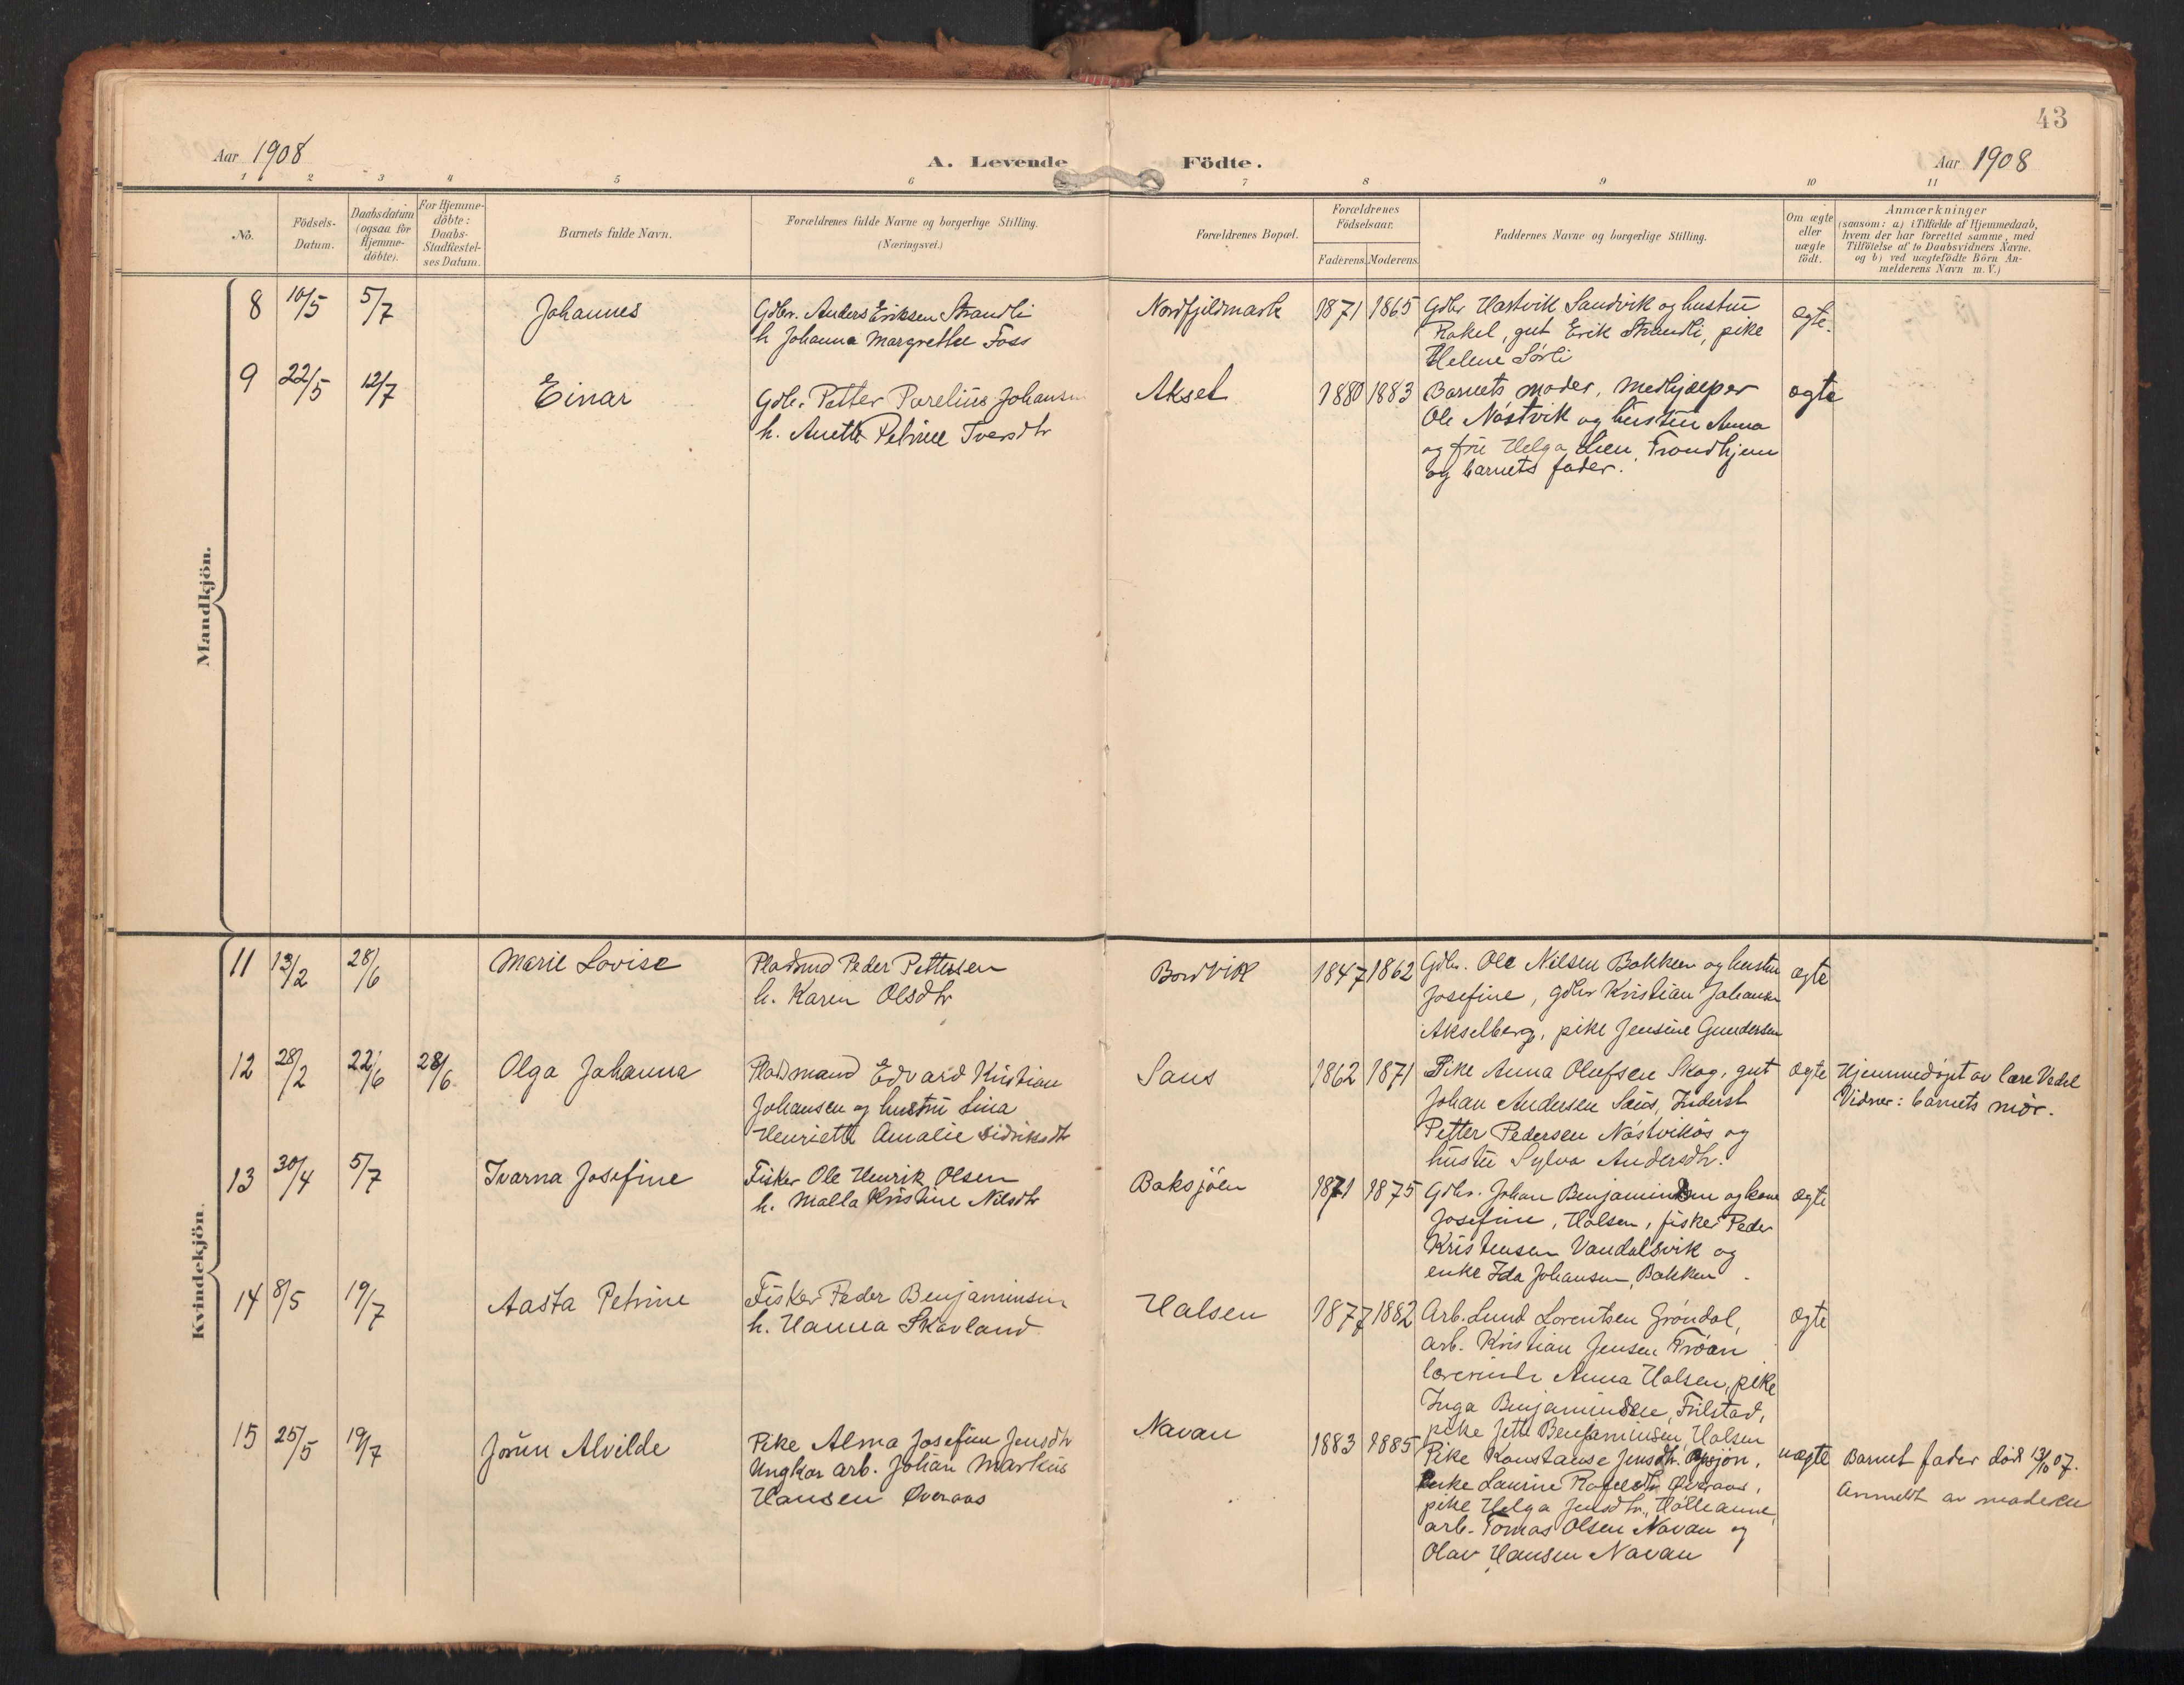 43
Aar 1908
A. Levende Födte.
Aar 1908
1 2 3 4 5 6 7 8 9 10 11
No.
Födsels-
Datum.
Daabsdatum
(ogsaa for
Hjemme-
döbte).
For Hjemme-
döbte:
Daabs-
Stadfæstel-
ses Datum.
Barnets fulde Navn.
Forældrenes fulde Navne og borgerlige Stilling.
(Næringsvei.)
Forældrenes Bopæl.
Forældrenes
Födselsaar.
Faderens. Moderens.
Faddernes Navne og borgerlige Stilling.
Om ægte
eller
uægte
födt.
Anmærkninger
(saasom: a) i Tilfælde af Hjemmedaab,
hvem der har forrettet samme, med
Tilföielse af to Daabsvidners Navne.
og b) ved uægtefödte Börn An-
melderens Navn m. V.)
Mandkjön.
8 10/5 5/7 Johannes
Gdbr. Anders Eriksen Strandli
h. Johanna Margrethe Foss
Nordfjeldmark 1871 1865
Gdbr Hartvik Sandvik og hustru
Rakel, gut Erik Strandli, pike
Helene Sørli
ægte.
9 22/5 12/7 Einar
Gdbr. Petter Parelius Johansen
h. Anette Petrine Iversdtr
Aksel 1880 1883
Barnets moder, medhjælper
Ole Nøstvik og hustru Anna
og fru Helga Lien, Trondhjem
og barnets fader.
ægte
Kvindekjön.
11 13/2 28/6 Marie Lovise
Pladsmd Peder Pettersen
h. Karen Olsdtr
Bordvik 1847 1862
Gdbr. Ole Nilsen Bakken og hustru
Josefine, gdbr Kristian Johansen
Akselberg, pike Jensine Gundersen
ægte
12 28/2 22/6 28/6 Olga Johanna
Pladsmand Edvard Kristian
Johansen og hustru Lina
Henriette Amalie Didriksdtr
Saus 1862 1871
Pike Anna Olufsen Skog, gut
Johan Andersen Saus, Inderst
Petter Pedersen Nøstvikøs og
hustru Sylva Andersdtr.
ægte
Hjemmedøpt av lære Vedel
Vidner: barnets mor.
13 30/4 5/7 Ivarna Josefine
Fisker Ole Henrik Olsen
h. Malla Kristine Nilsdtr
Baksjøen 1871 1875
Gdbr. Johan Benjaminsen og kone
Josefine, Halsen, fisker Peder
Kristensen Vandalsvik og
enke Ida Johansen, Bakken
ægte
14 8/5 19/7 Aasta Petrine
Fisker Peder Benjaminsen
h. Hanna Skavland
Halsen 1877 1882
Arb. Lund Lorentsen Grøndal,
arb. Kristian Jensen Trøan
lærerinde Anna Halsen, pike
Inga Benjaminsen,
pike Jette Benjaminsen, Halsen
ægte
15 25/5 19/7 Jørun Alvilde
Pike Alma Josefine Jensdtr
Ungkar arb. Johan Markus
Hansen Øveraas
Navan 1883 1885
Pike Konstanse Jensdtr.
enke Laurine Øveraas,
pike Helga Jensdtr.,
arb. Tomas Olsen Navan og
Olav Hansen Navan
uægte
Barnet fader død 13/10 07.
Anmeldt av moderen